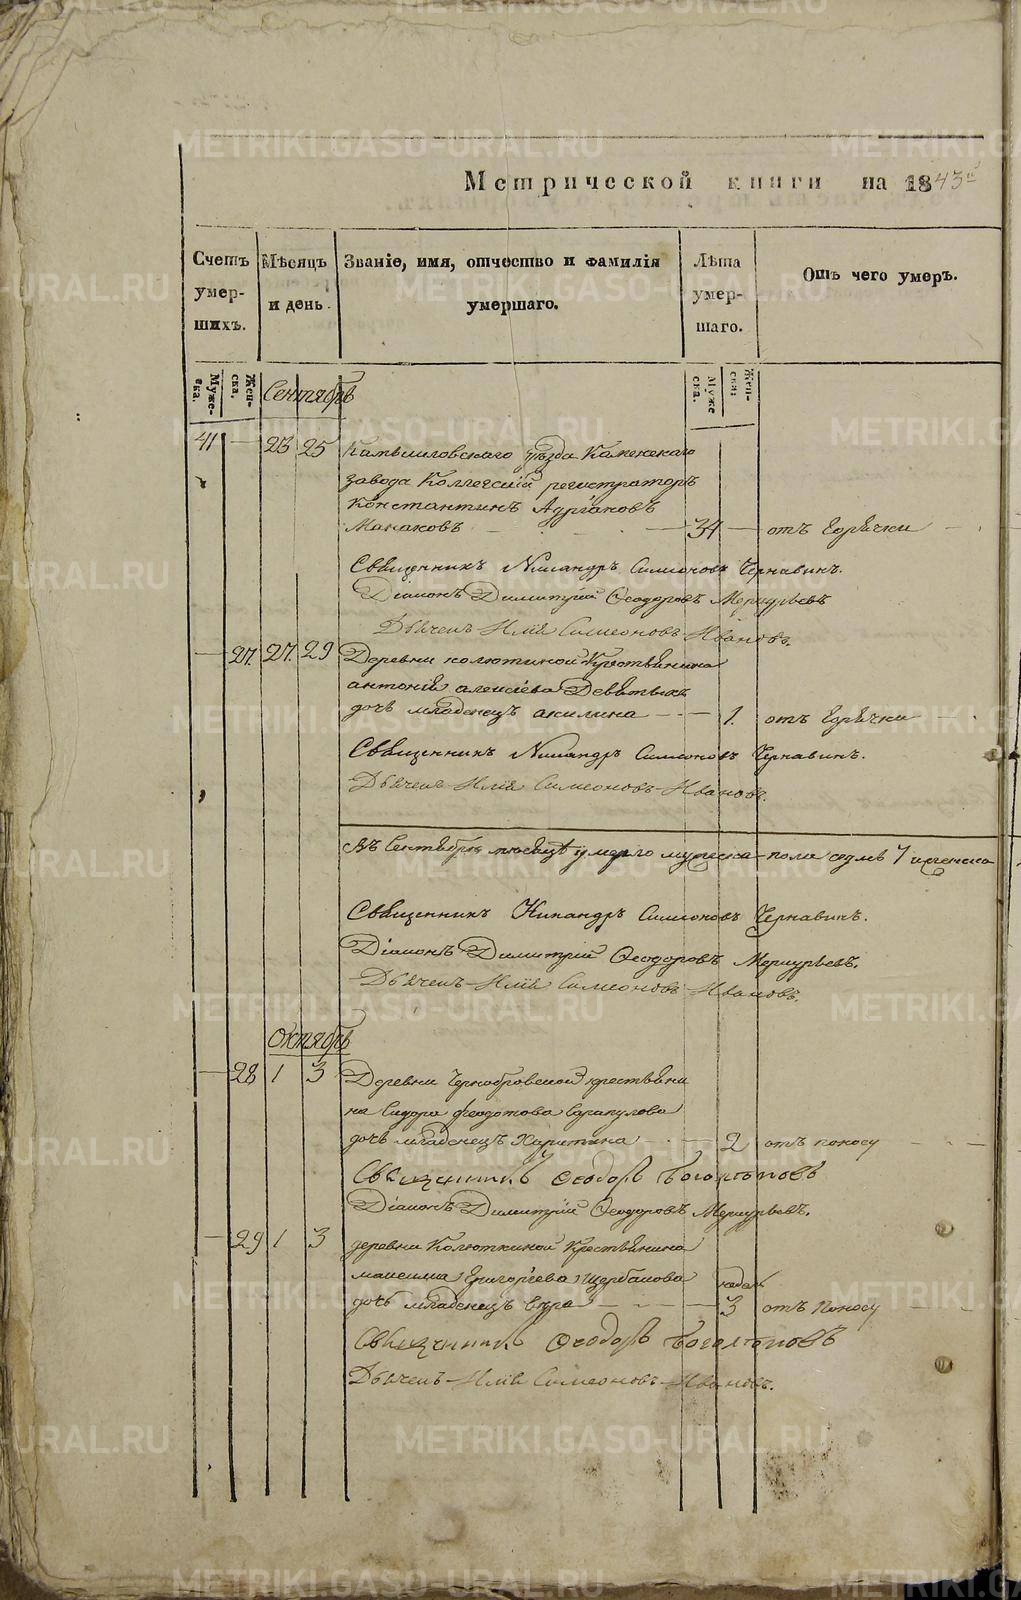 Метрической книги на 1843й
Счетъ умершихъ.
Мѣсяцъ и день.
Званіе, имя, отчество и фамилія умершаго.
Лѣта умершаго.
Отъ чего умеръ.
Мужеска.
Женска.
Мужеска.
Женска.
Сентябрь
41 — 23 25 Камышловскаго уѣзда Каменскаго
завода Коллегскій регистраторъ
Константинъ Адріановъ
— 34 — отъ Горячки
Священникъ Никандръ Симеоновъ Чернавинъ.
Діаконъ Димитрій Ѳеодоровъ Меркурьевъ
Дьячекъ Илія Симеоновъ Ивановъ.
— 27. 27. 29 Деревни Колюткиной Крестьянина
антонія алексіева Девятыхъ
дочь младенецъ акилина — 1. отъ Горячки
Священникъ Никандръ Симеоновъ Чернавинъ.
Дьячекъ Илія Симеоновъ Ивановъ.
Въ Сентябрѣ мѣсяцѣ умерло мужеска пола седмь 7 и женска
Священникъ Никандръ Симеоновъ Чернавинъ.
Діаконъ Димитрій Ѳеодоровъ Меркурьевъ.
Дьячекъ Илія Симеоновъ Ивановъ.
Октябрь
— 28 1 3 Деревни Чернобровской крестьяни
на Сидора феодотова Сарапулова
дочь младенецъ Харитина — 2 отъ поносу
Священникъ Ѳеодоръ Богомоловъ
Діаконъ Димитрій Ѳеодоровъ Меркурьевъ.
— 29 1 3 деревни Колюткиной Крестьянина
максима Григоріева Щербакова недѣль
дочь младенецъ Вѣра — 3 отъ Поносу
Священникъ Ѳеодоръ
Дьячекъ Илія Симеоновъ Ивановъ.
METRIKI.GASO-URAL.RU